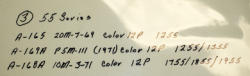 ③ 55 Series
A-165 20M-7-69 Color 12P 1255
A-169A P5M-111 (1971) Color 12P 1255/1355
A-168A 10M-3-71 Color 12P 1755/1855/1955